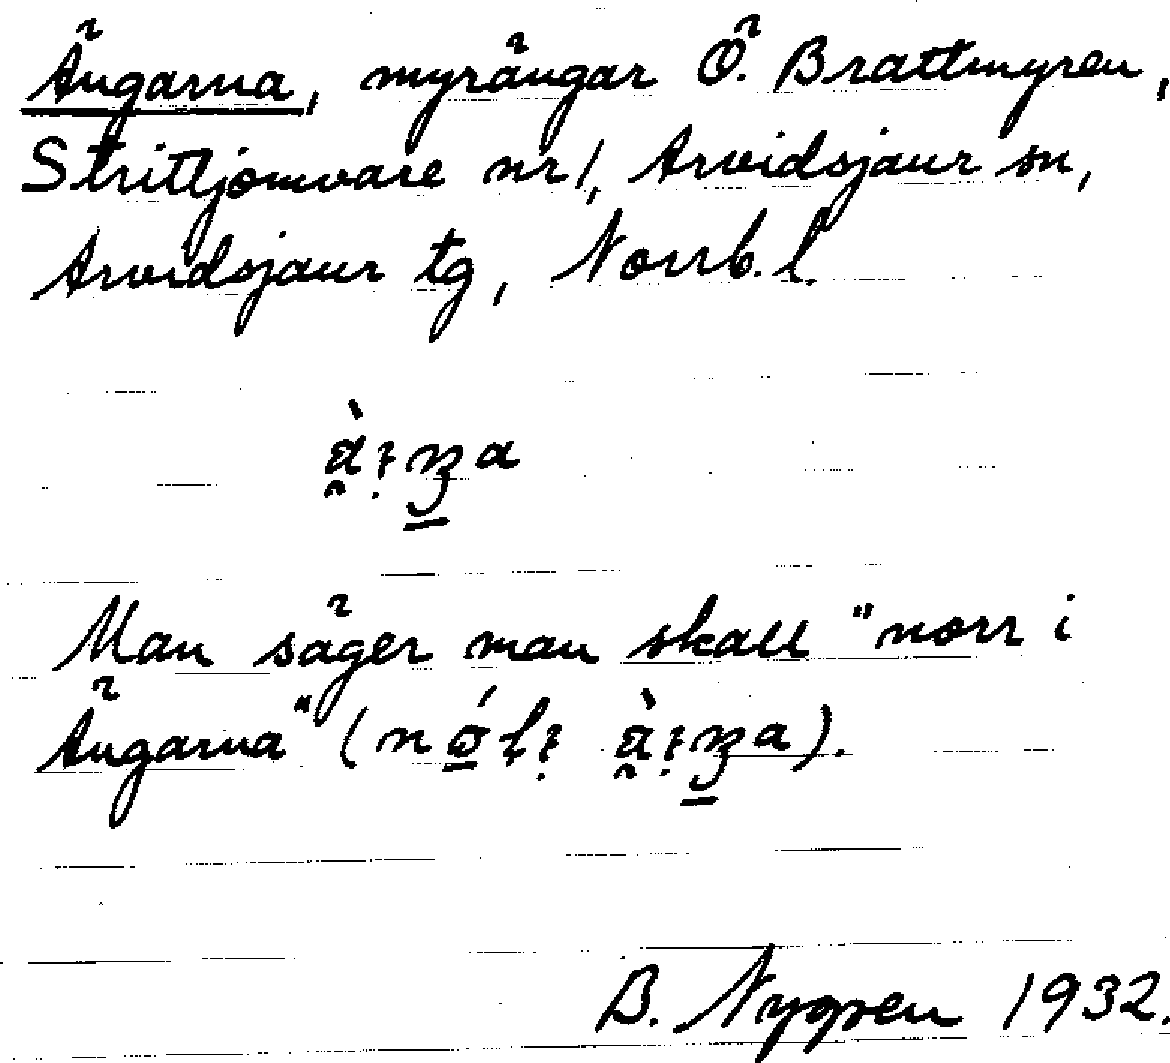 Ängarna, myrängar Ö. Brattmyren,
Strittjomvare nr 1, Arvidsjaur sn,
Arvidsjaur tg, Norrb. l.
Man säger man skall "norr i
Ängarna"
B. Nygren 1932.